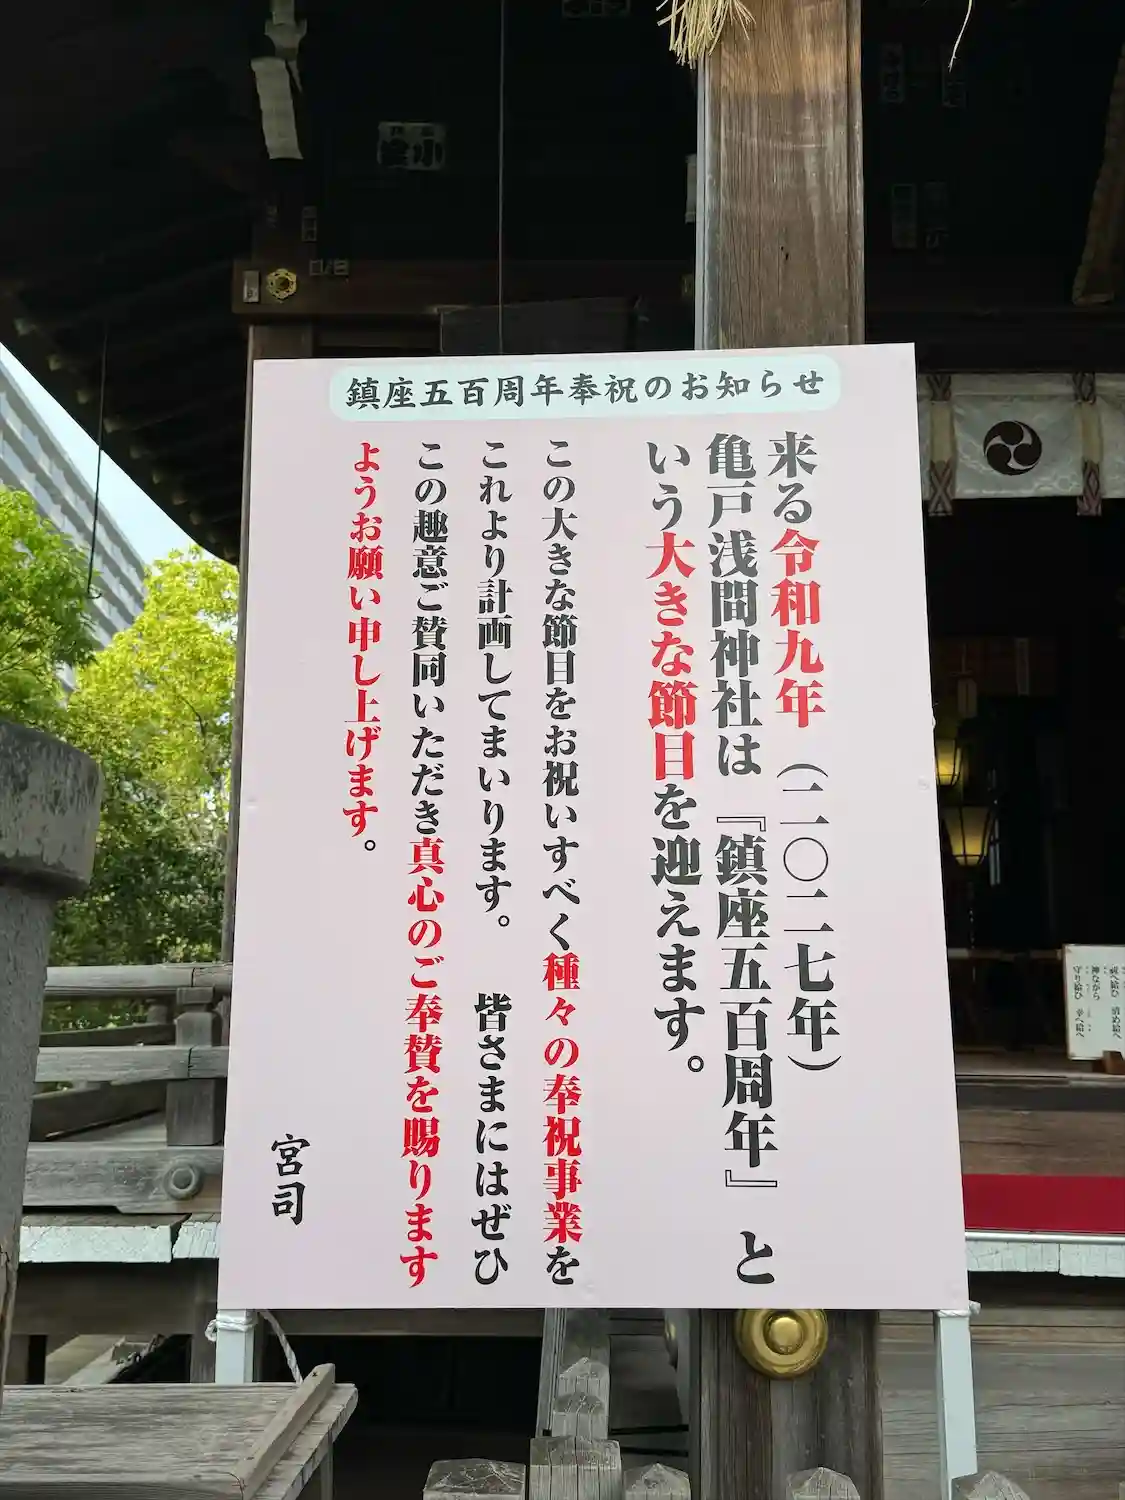 鎮座五百周年奉祝のお知らせ
来る令和九年（二〇二七年）
亀戸浅間神社は『鎮座五百周年』と
いう大きな節目を迎えます。
この大きな節目をお祝いすべく種々の奉祝事業を
これより計画してまいります。　皆さまにはぜひ
この趣意ご賛同いただき真心のご奉賛を賜ります
ようお願い申し上げます。
宮司
神ながら
守り給ひ　幸へ給へ